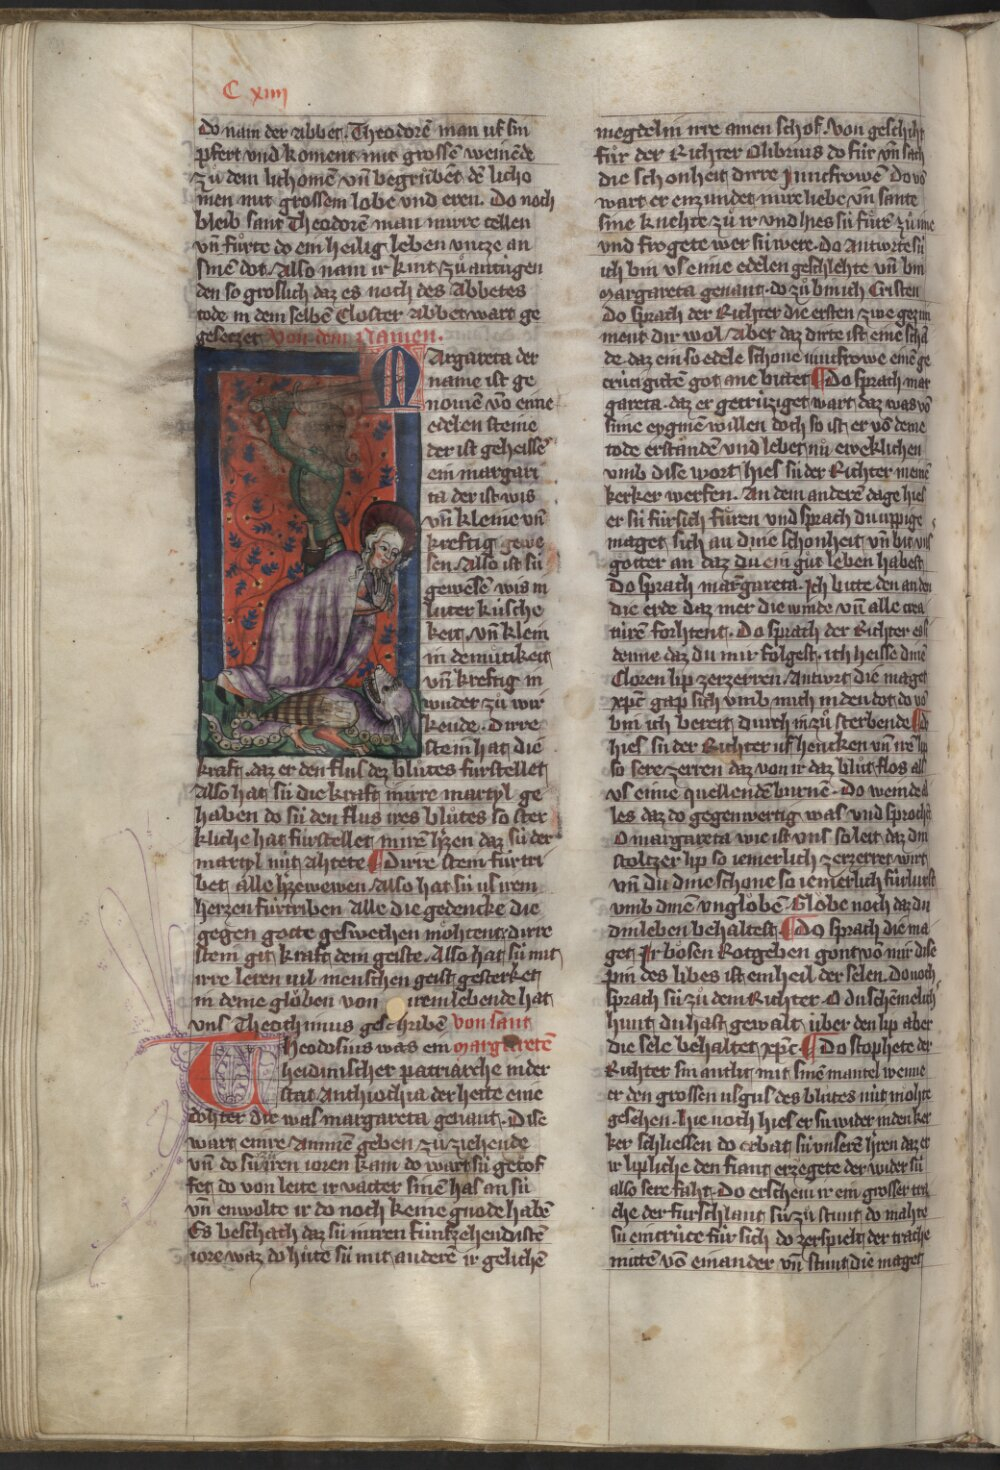 C xiiij
do nam der abbet. Theodorē man uf sin
pfert vnd koment mit grossē weinēde
zů dem lichomē vn̄ begrůbēt dē licho
men mit grossem lobe vnd eren. Do noch
bleib sant Theodorē man in irre cellen
vn̄ fůrte do ein heilig leben vntze an
sinē dot. Also nam ir kint zů an tůgen
den so groslich daz es noch des Abbetes
tode in dem selbē Closter Abbet wart ge
gesetzet Von dem Namen.
Margareta der
name ist ge
nomē vō eime
edelen steine
der ist geheissē
ein margari
ta der ist wis
vn̄ kleine vn̄
kreftig gewe
sen. Also ist sů
gewesē wis in
luter kůsche
keit vn̄ klein
in demůtikeit
vn̄ kreftig in
wunder zů wir
kende. Dirre
stein hat die
kraft daz er den flus dez blůtes furstellet
Also hat sů die kraft in irre martyl ge
haben do sů den flus ires blůtes so ster
kliche hat fůrstellet in irē h'zen daz sů der
martyl nůt ahtete ¶ Dirre stein fůrtri
bet alle h'zewewen Also hat sů us irem
herzen fůrtriben alle die gedencke die
gegen gotte geswechen mohtent dirre
stein git kraft dem geiste. Also hat sů mit
irre leren uil menschen geist gesterket
in deme glŏben von irem lebende hat
vns Theothimus geschribē von sant
Theodosius was ein margaretē
heidinischer patriarche in der
stat Anthiochia der hette eine
dohter die was margareta genant. Dise
wart einre Ammē geben zů ziehende
vn̄ do sů zů iren ioren kam do wart sů getŏf
fet do von leite ir vatter sinē has an sů
vn̄ enwolte ir do noch keine gnode habē
Es beschach daz sů in iren fůnfzehendistē
iore waz do hůte sů mit anderē ir gelichē
megdelin irre amen schof. Von geschiht
fůr der Richter Olibrius do fůr vn̄ sach
die schonheit dirre Juncfrowē Do vō
wart er enzundet in ire liebe vn̄ sante
sine knehte zů ir vnd hies sů fůrē zů ime
vnd frogete wer sů were. Do Antworte sů
ich bin vs eime edelen geschlehte vn̄ bin
Margareta genant. do zů bin ich Cristen
Do sprach der Richter die ersten zwe gezim
ment dir wol Aber daz dirte ist eine schā
de. daz ein so edele schone iuncfrowe einē ge
crůcigitē got ane bittet ¶ Do sprach mar
gareta. daz er gecrůziget wart daz was vō
sime eyginē willen doch so ist er vō deme
tode erstandē vnd lebet nů eweklichen
vmb dise wort hies sů der Richter in einē
kerker werfen. An dem anderē dage hies
er sů fůr sich fůren vnd sprach du uppige
maget sich an dine schonheit vn̄ bit vns
gŏtter an daz du ein gůt leben habest
Do sprach margareta. Ich bitte den an den
die erde daz mer die winde vn̄ alle crea
tůrē fŏrhtent. Do sprach der Richter es si
denne daz du mir folgest. ich heisse dinē
Cloren lip zerzerren Antwurt die maget
xp̄c gap sich vmb mich in den dot do vō
bin ich bereit durch in zů sterbende ¶ do
hies sů der Richter uf hencken vn̄ irē lip
so sere zerren daz von ir daz blůt flos als
vs eime quellendē burnē. Do weinde al
les daz do gegenwertig was vnd sprochē
O margareta wie ist vns so leit daz din
stoltzer lip so iemerlich zerzerret wirt
vn̄ du dine schone so iemerlich fůrlurst
vmb dinē vnglŏbē. Glŏbe noch daz du
din leben behaltest. ¶ Do sprach die ma
get Jr bŏsen Rotgeben gont vō mir dise
pin des libes ist ein heil der selen. Do noch
sprach sů zů dem Richter. O du schēmelich
hunt du hast gewalt über den lip aber
die sele behaltet xp̄c. ¶ Do stophete der
Richter sin antlit mit sinē mantel wenne
er den grossen usgus des blůtes nůt mohte
gesehen. Hie noch hies er sů wider in den ker
ker schliessen do erbat sů vnserē h'ren daz er
ir lipliche den fiant erzegete der wider sů
also sere faht. Do erschein ir ein grosser tra
che der furschlant sů zů stunt do mahte
sů ein crůtze fůr sich do zerspielt der trache
mittē vō einander vn̄ stunt die maget